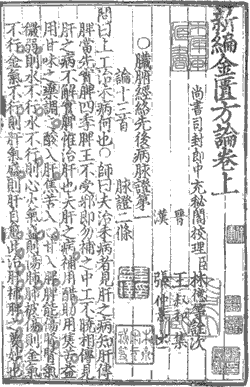 新編金匱方論卷上
尚書司封郎中充秘閣校理臣林億等詮次
晉 王叔和 集
漢 張仲景 述
○臟腑經絡先後病脉證第一
論十三首 脉證二條
問曰上工治未病何也○師曰夫治未病者見肝之病知肝傳
脾當先實脾四季脾王不受邪即勿補之中工不曉相傳見
肝之病不解實脾惟治肝也夫肝之病補用酸助用焦苦益
用甘味之藥調之酸入肝焦苦入心甘入脾脾能傷腎腎氣
微弱則水不行水不行則心火氣盛則傷肺肺被傷則金氣
不行金氣不行則肝氣盛則肝自愈此治肝補脾之要妙也